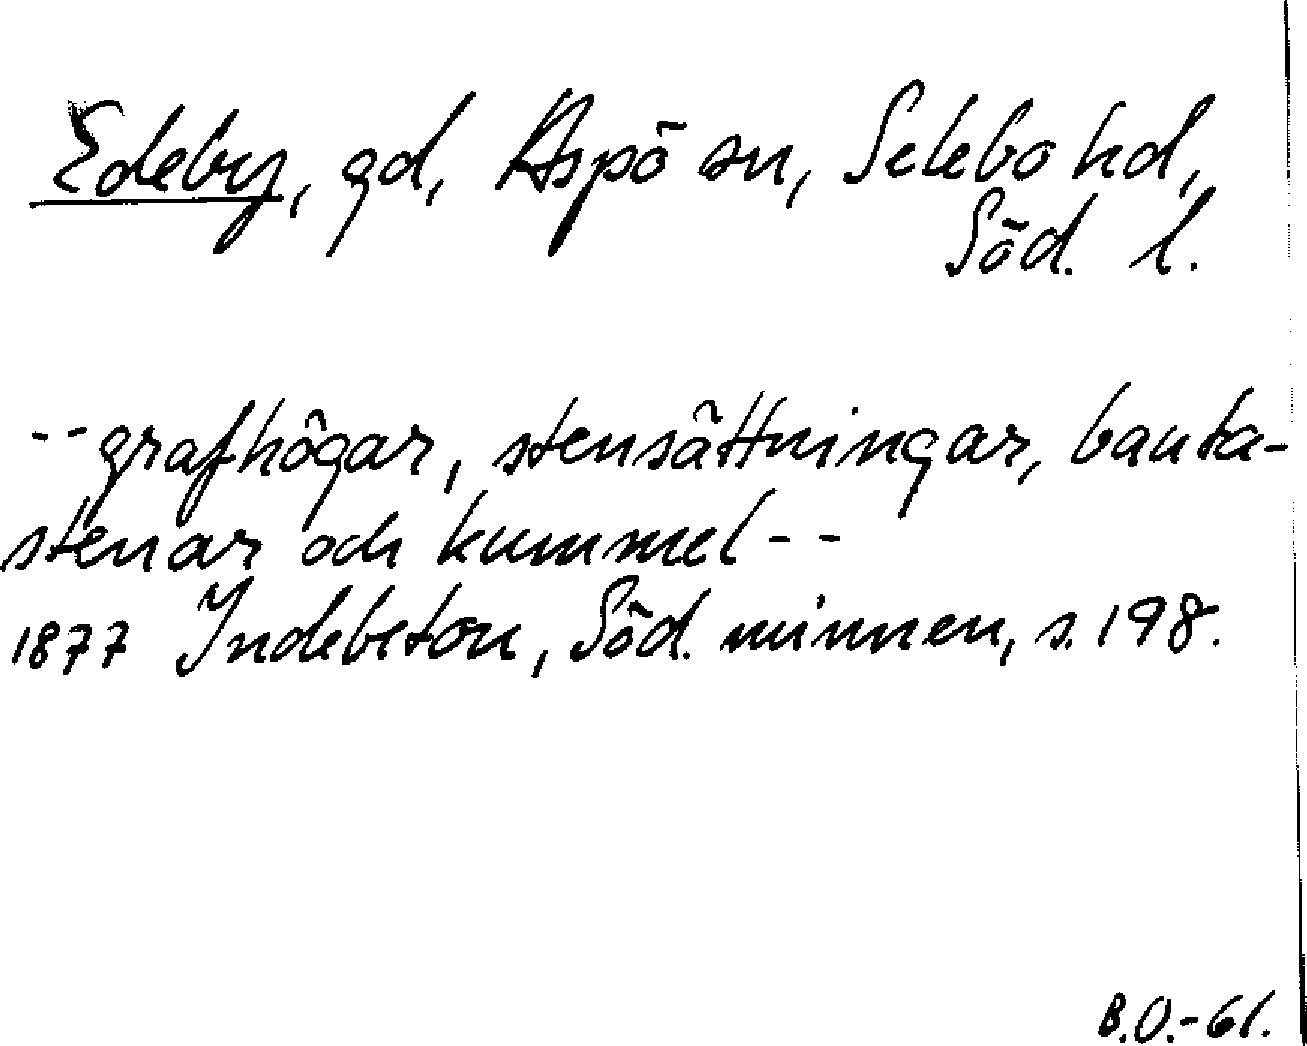 Edeby, gd, Aspö sn, Selebo hd,
Söd. l.
-- grafhögar, stensättningar, bauta-
stenar och kummel --
1877 Indebetou, Söd. minnen, s. 198.
B.O.-61.